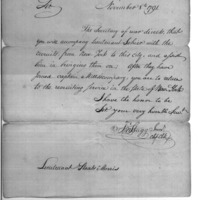 Sir, November 8th 1791
The Secretary of war directs that
you will accompany Lieutenant with the
recruits from New York to this City and assist
him in bringing them on. After they have
joined captain you are to return
to the recruiting service in the State of New York
I have the honor to be
Sir your very humble Servt.
Lieutenant